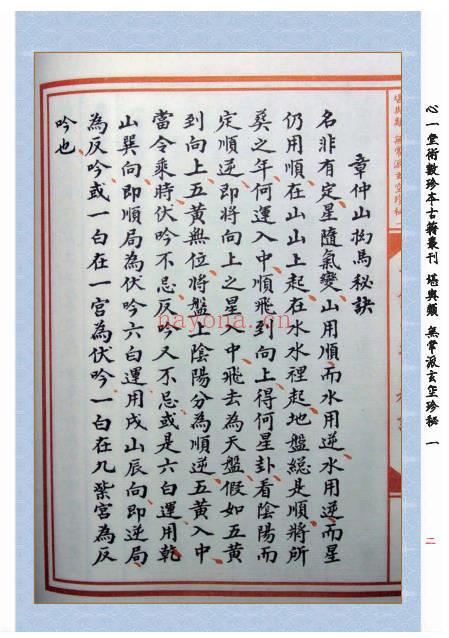 心一堂術數珍本古籍叢刊 堪輿類 無常派玄空珍秘 一
二
堪輿類 無常派玄空珍秘 一
章仲山挨星秘訣
名非有定星隨氣變山用順而水用逆水用逆而星
仍用順在山山上起在水水裡起地盤總是順將所
葬之年何運入中順飛到向上得何星卦看陰陽而
定順逆即將向上之星入中飛去為天盤假如五黃
到向上五黃無位將盤上陰陽分為順逆五黃入中
當令乘時伏吟不忌反吟又不忌或是六白運用乾
山巽向即順局為伏吟六白運用戌山辰向即逆局
為反吟或一白在一宮為伏吟一白在九紫宮為反
吟也
nayona.cn